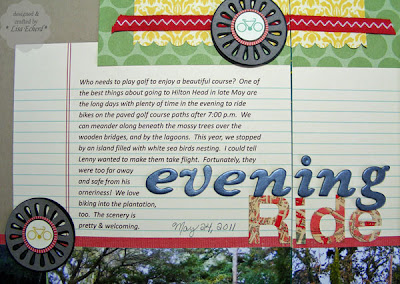 designed &
crafted by
* Lisa Echerd *
Who needs to play golf to enjoy a beautiful course?  One of
the best things about going to Hilton Head in late May are
the long days with plenty of time in the evening to ride
bikes on the paved golf course paths after 7:00 p.m.  We
can meander along beneath the mossy trees over the
wooden bridges, and by the lagoons.  This year, we stopped
by an island filled with white sea birds nesting.  I could tell
Lenny wanted to make them take flight.  Fortunately, they
were too far away
and safe from his
orneriness!  We love
biking into the plantation,
too.  The scenery is
pretty & welcoming.
evening
Ride
May 24, 2011